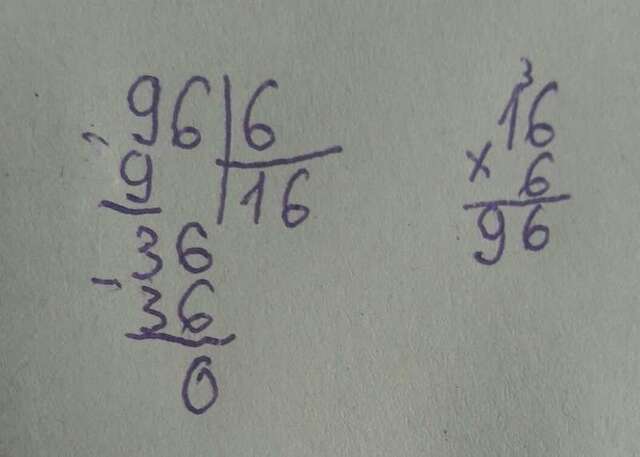 96|6
-9 |16
36
-36
0
3
16
× 6
96